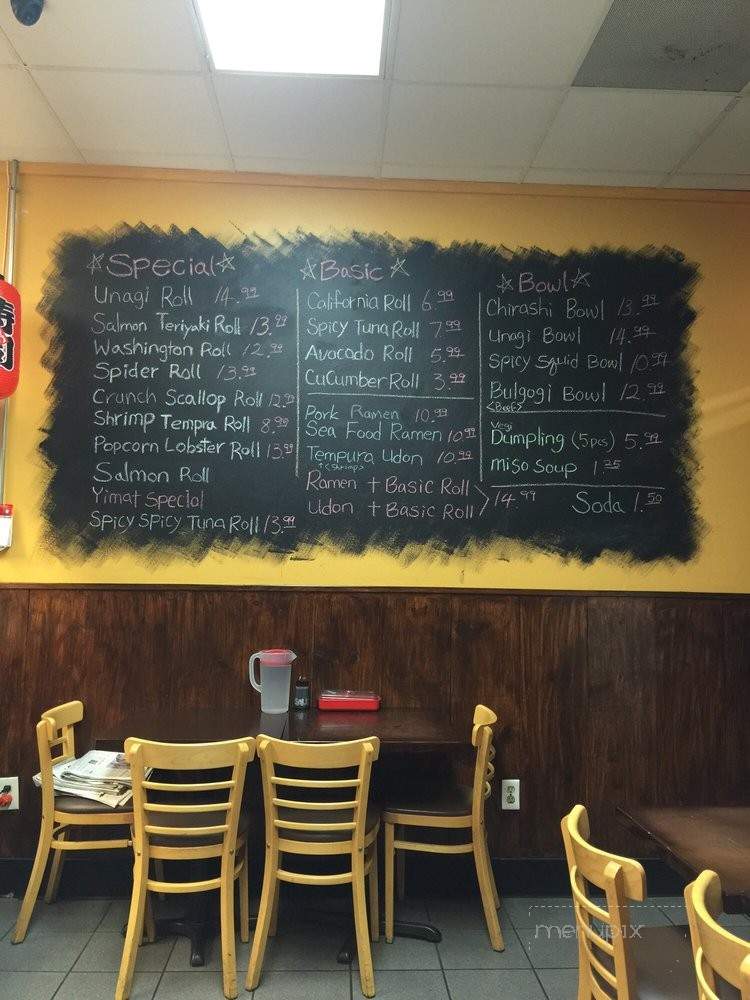 ☆Special☆
Unagi Roll 14.99
Salmon Teriyaki Roll 13.99
Washington Roll 12.99
Spider Roll 13.99
Crunch Scallop Roll 12.99
Shrimp Tempra Roll 8.99
Popcorn Lobster Roll 13.99
Salmon Roll
Yimat Special
Spicy Spicy Tuna Roll 13.99
☆Basic☆
California Roll 6.99
Spicy Tuna Roll 7.99
Avocado Roll 5.99
CuCumber Roll 3.99
Pork Ramen 10.99
Sea Food Ramen 10.99
Tempura Udon 10.99
<Shrimp>
Ramen + Basic Roll
Udon + Basic Roll
14.99
☆Bowl☆
Chirashi Bowl 13.99
Unagi Bowl 14.99
Spicy Squid Bowl 10.99
Bulgogi Bowl 12.99
<Beef>
Vegi
Dumpling (5pcs) 5.99
miso Soup 1.25
Soda 1.50
menupix